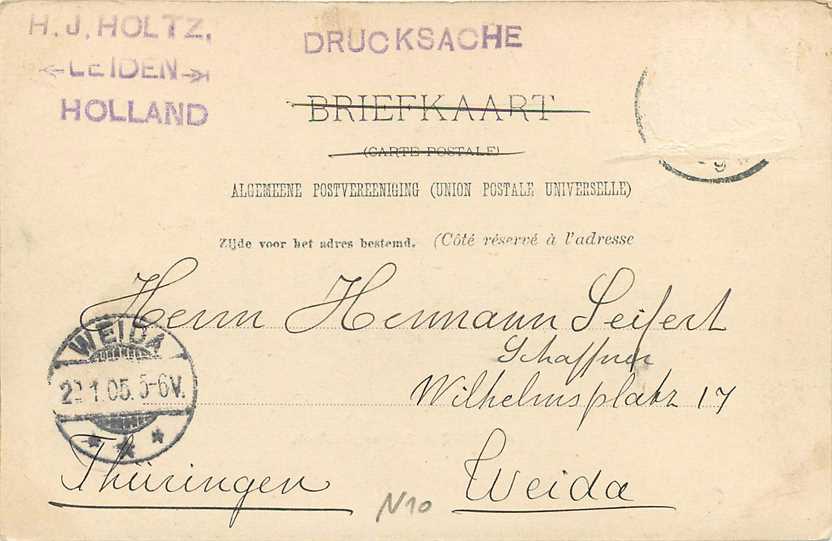 H. J. HOLTZ,
LEIDEN
HOLLAND
DRUCKSACHE
BRIEFKAART
(CARTE POSTALE)
ALGEMEENE POSTVEREENIGING (UNION POSTALE UNIVERSELLE)
Zijde voor het adres bestemd. (Côté réservé à l'adresse
Herrn Hermann Seifert
Schaffner
Wilhelmsplatz 17
WEIDA
1.05. 5-6V.
Thüringen Weida
N10